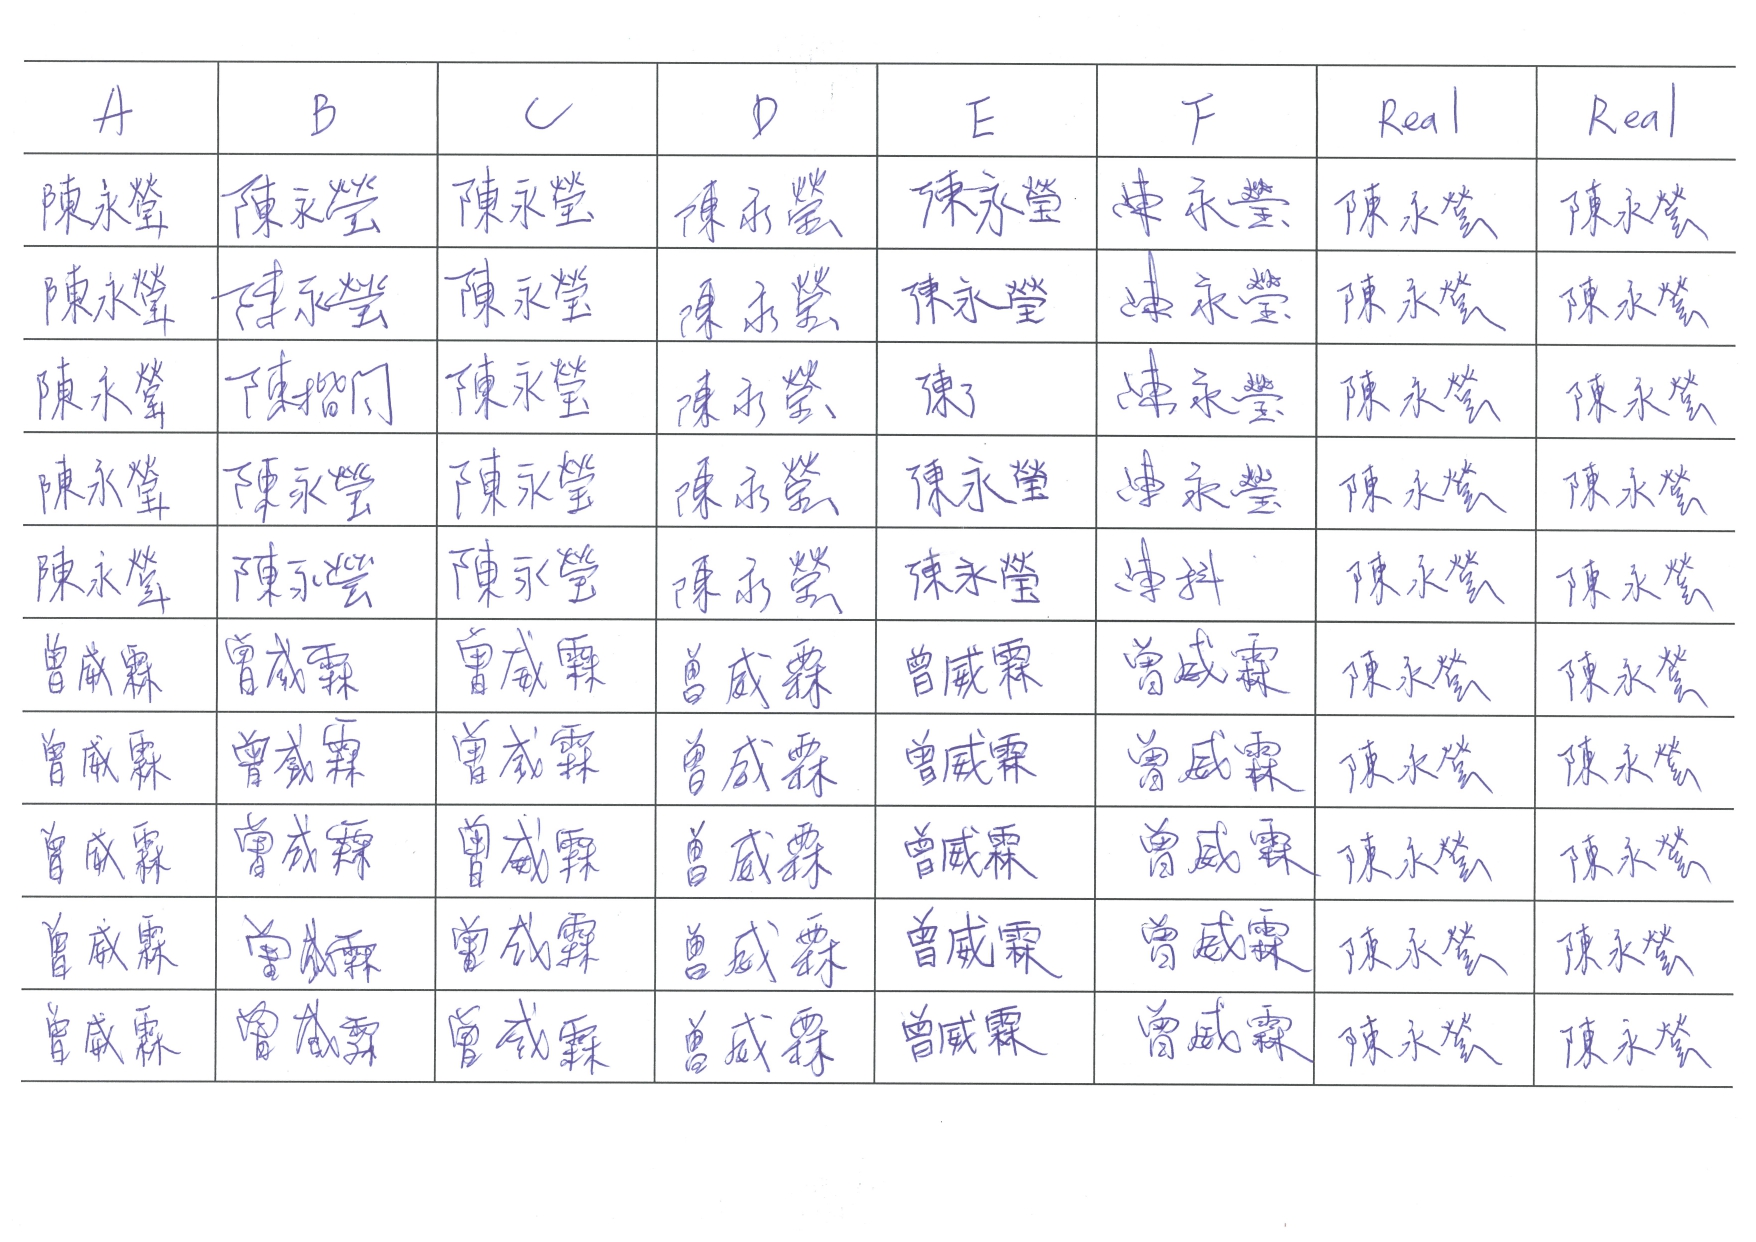 A B C D E F Real Real
陳永瑩 陳永瑩 陳永瑩 陳永瑩 陳永瑩 陳永瑩 陳永瑩 陳永瑩
陳永瑩 陳永瑩 陳永瑩 陳永瑩 陳永瑩 陳永瑩 陳永瑩 陳永瑩
陳永瑩 陳 陳永瑩 陳永瑩 陳 陳永瑩 陳永瑩 陳永瑩
陳永瑩 陳永瑩 陳永瑩 陳永瑩 陳永瑩 陳永瑩 陳永瑩 陳永瑩
陳永瑩 陳永瑩 陳永瑩 陳永瑩 陳永瑩 陳 陳永瑩 陳永瑩
曾威霖 曾威霖 曾威霖 曾威霖 曾威霖 曾威霖 陳永瑩 陳永瑩
曾威霖 曾威霖 曾威霖 曾威霖 曾威霖 曾威霖 陳永瑩 陳永瑩
曾威霖 曾威霖 曾威霖 曾威霖 曾威霖 曾威霖 陳永瑩 陳永瑩
曾威霖 曾威霖 曾威霖 曾威霖 曾威霖 曾威霖 陳永瑩 陳永瑩
曾威霖 曾威霖 曾威霖 曾威霖 曾威霖 曾威霖 陳永瑩 陳永瑩